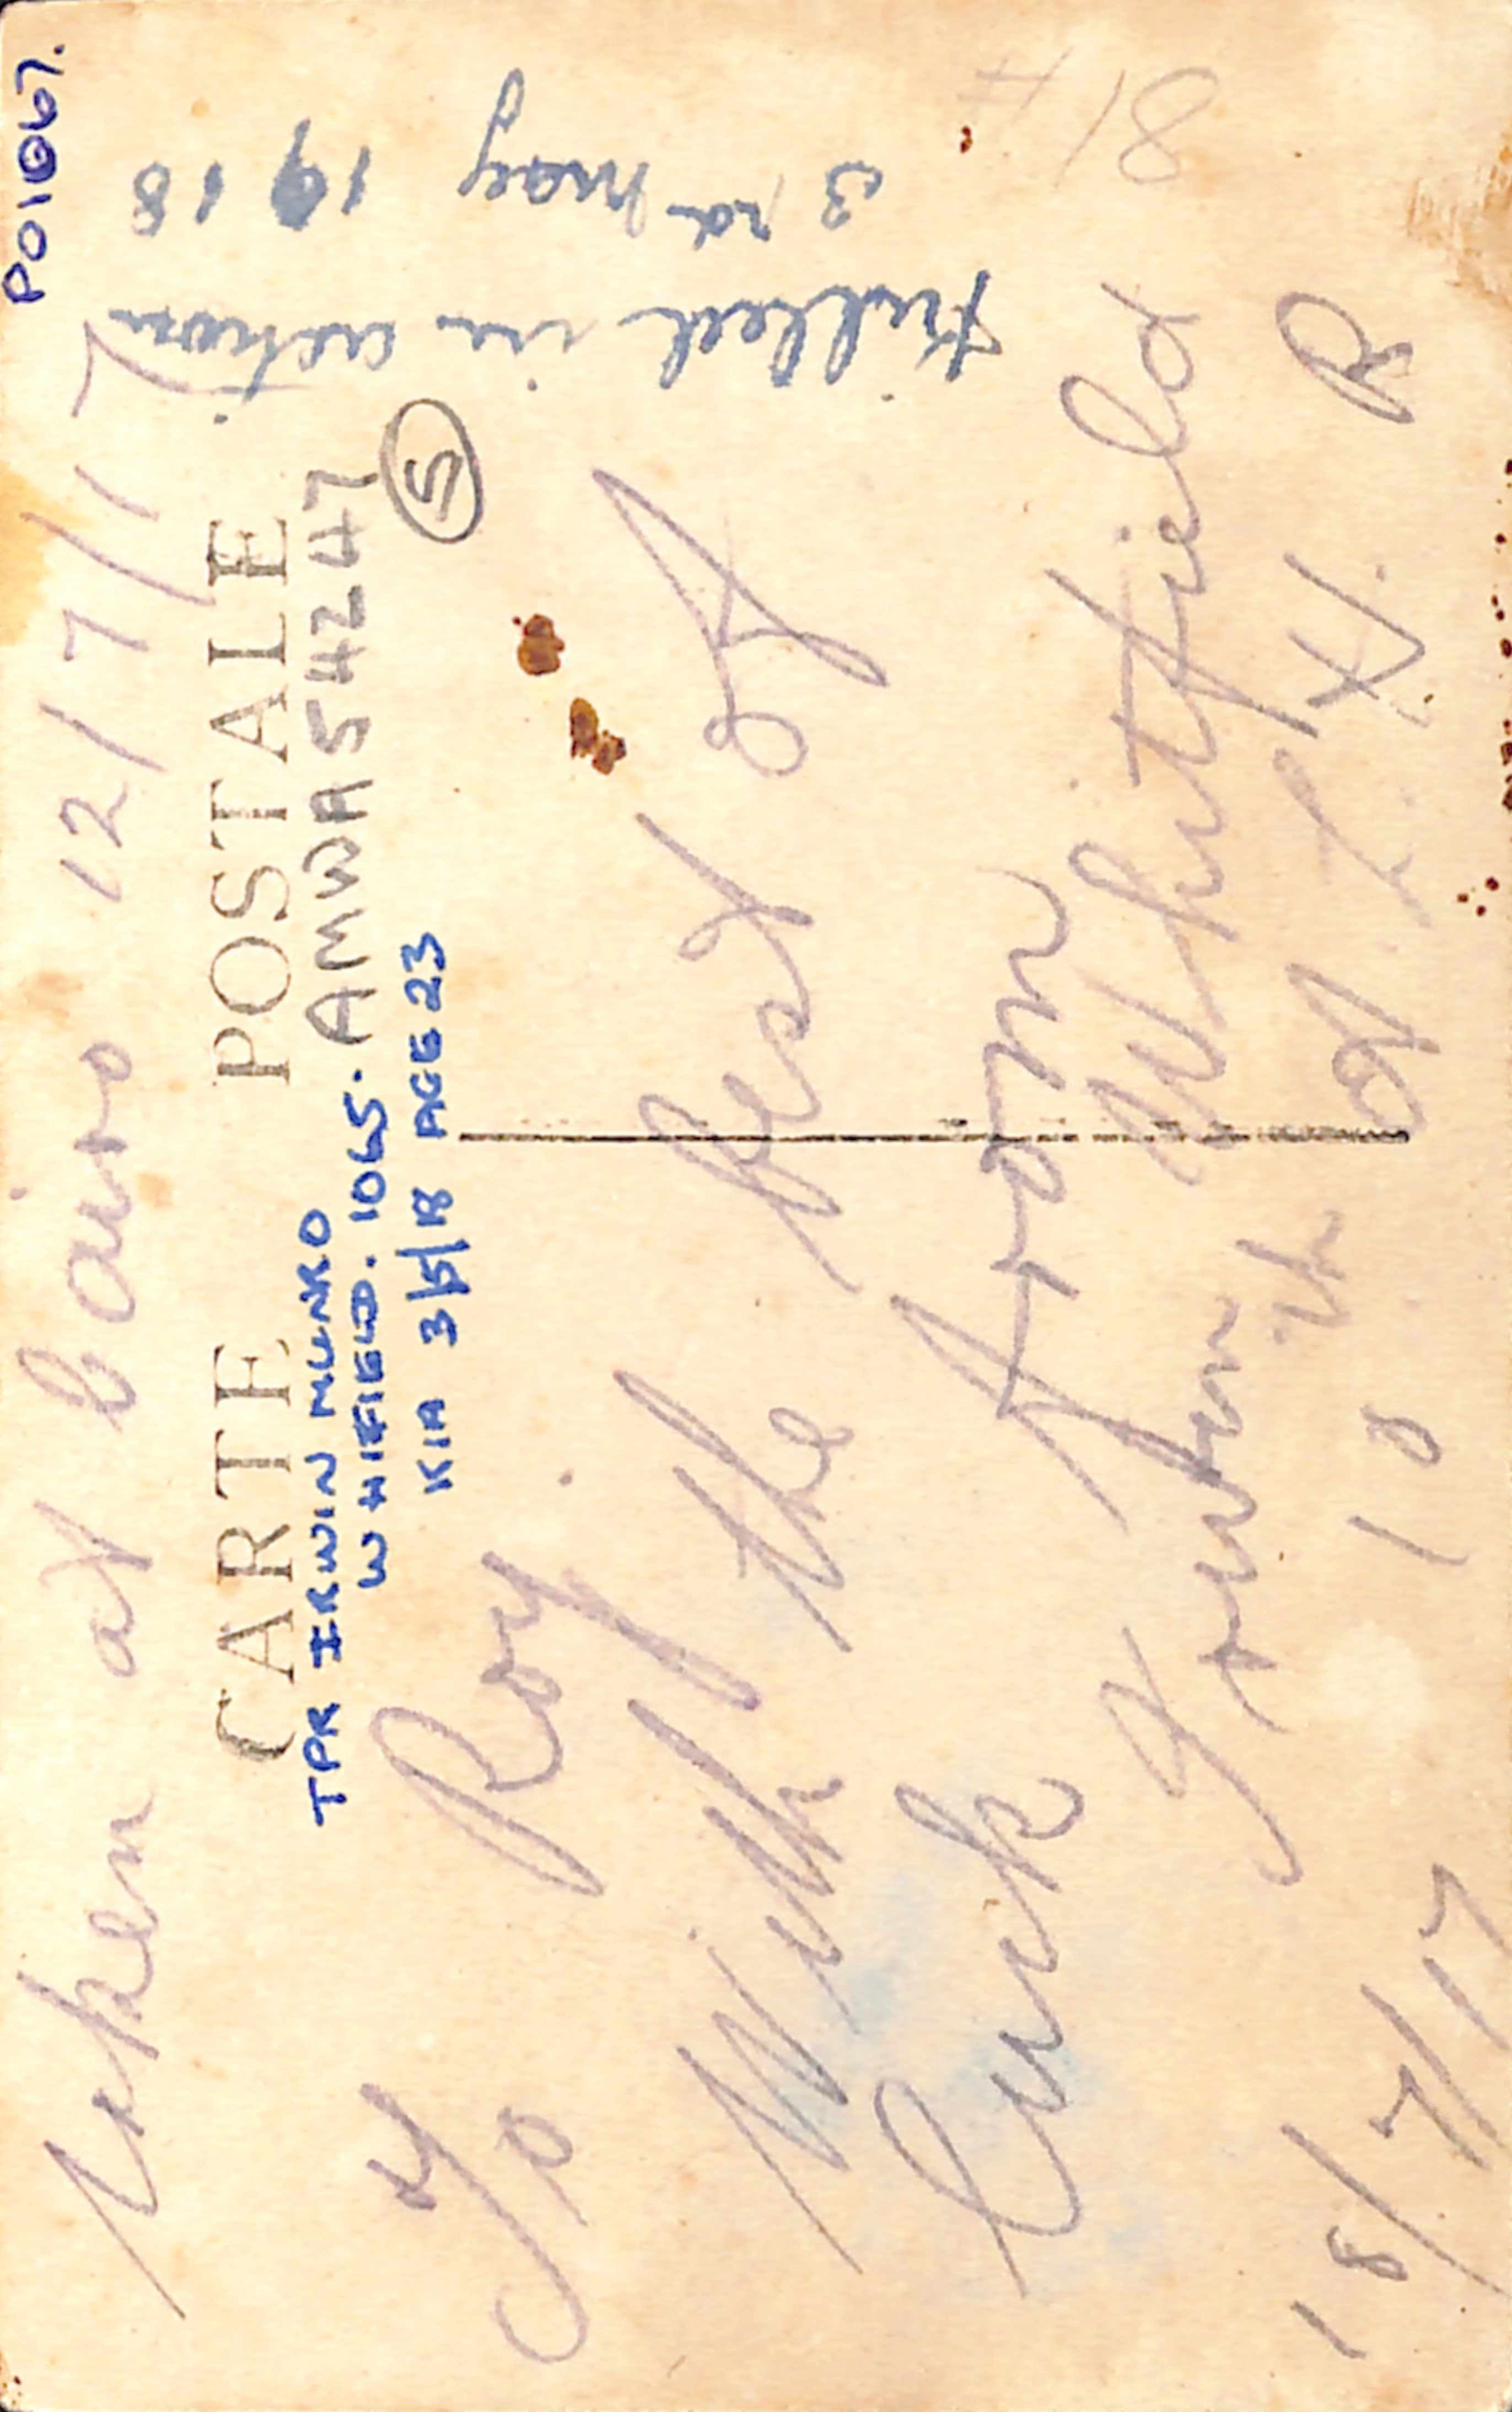 P01067.
Taken at Cairo 12/7/17
CARTE POSTALE
TPR IRWIN MUNRO
WHIFIELD. 1065. AMWA54247
KIA 3/5/18 AGE 23
5
To Roy.
With the best of
Luck from
Irwin M Whitfield
18/7/17 10th A. L. H. R
Killed in action
3rd may 1918
#18